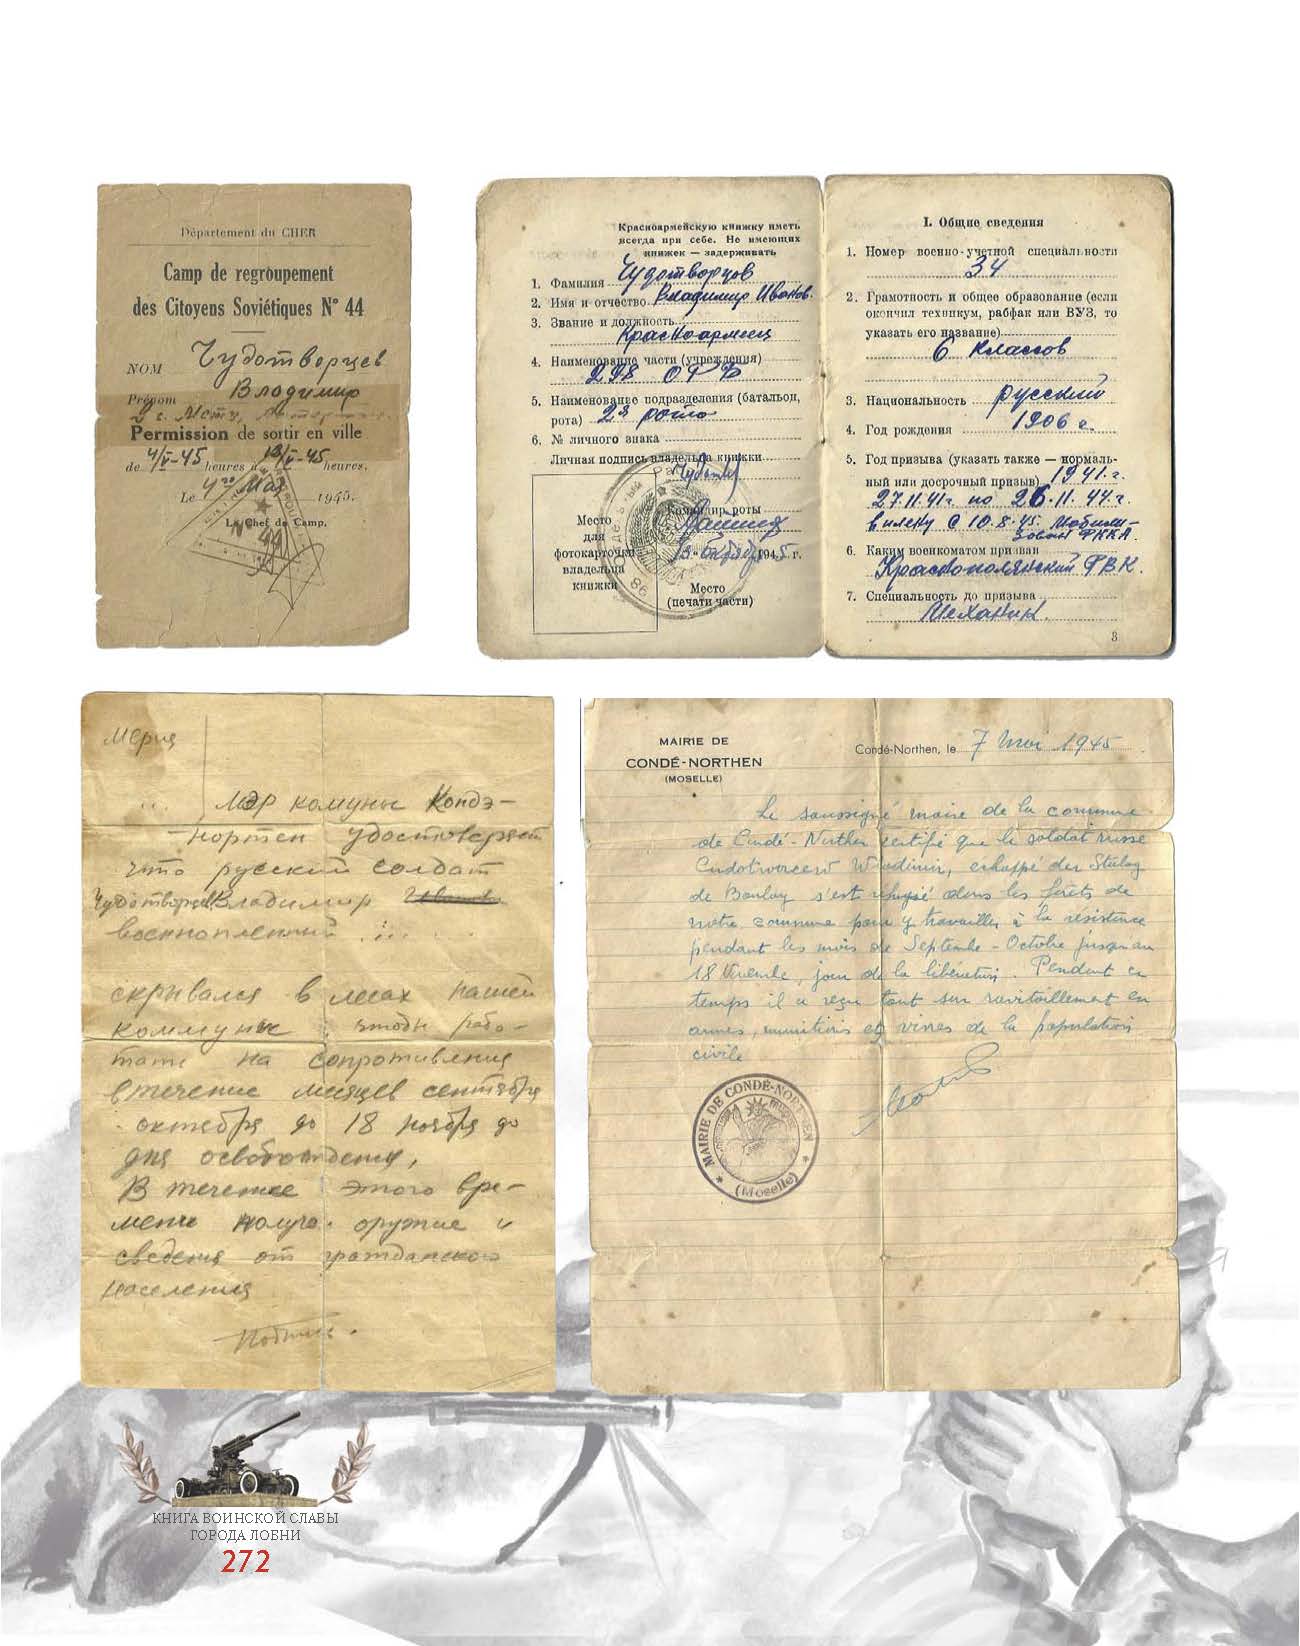 Département du CHER
Camp de regroupement
des Citoyens Soviétiques N° 44
NOM Чудотворцев
Prénom Владимир
в г. Метц
Permission de sortir en ville
de 4/V-45 heures à 13/V-45 heures.
Le 4го Мая 1945.
Le Chef de Camp.
N° 44
Красноармейскую книжку иметь
всегда при себе. Не имеющих
книжек — задерживать
1. Фамилия Чудотворцов
2. Имя и отчество Владимир Иванов.
3. Звание и должность
Красноармеец
4. Наименование части (учреждения)
298 ОРБ
5. Наименование подразделения (батальон,
рота) 2я рота
6. № личного знака
Личная подпись владельца книжки
Место
для
фотокарточки
владельца
книжки
Командир роты
октября 1945 г.
Место
(печати части)
I. Общие сведения
1. Номер военно-учетной специальности
34
2. Грамотность и общее образование (если
окончил техникум, рабфак или ВУЗ, то
указать его название)
6 классов
3. Национальность русский
4. Год рождения 1906 г.
5. Год призыва (указать также — нормаль-
ный или досрочный призыв) 1941.г.
27.11.41г. по 26.11.44.г.
в плену с 10.8.45. мобили-
зован РККА.
6. Каким военкоматом призван
Краснополянский РВК.
7. Специальность до призыва
Механик.
3
Мерия
Мэр комуны Кондэ-
нортен удостоверяет
что русский солдат
Чудотворцев Владимир
военнопленный
скрывался в лесах нашей
коммуны чтобы рабо-
тать на сопротивления
в течение месяцев сентября
- октября до 18 ноября до
дня освобождения,
В течение этого вре-
мени получ. оружие и
сведения от гражданского
населения
Подпись.
MAIRIE DE
CONDÉ-NORTHEN
(MOSELLE)
Condé-Northen, le 7 Mai 1945
Le soussigné maire de la commune
de Condé-Northen certifié que le soldat russe
Cudotworcew Wladimir, echappé du Stalag
de Boulay s'est réfugié dans les forêts de
notre commune pour y travailler à la résistence
pendant les mois de Septembe - Octobre jusqu'au
18 Novembe, jour de la libération. Pendant ce
temps il a reçu tout son ravitaillement en
armes, munitions et vivres de la population
civile
MAIRIE DE CONDÉ-NORTHEN
(Moselle)
КНИГА ВОИНСКОЙ СЛАВЫ
ГОРОДА ЛОБНИ
272